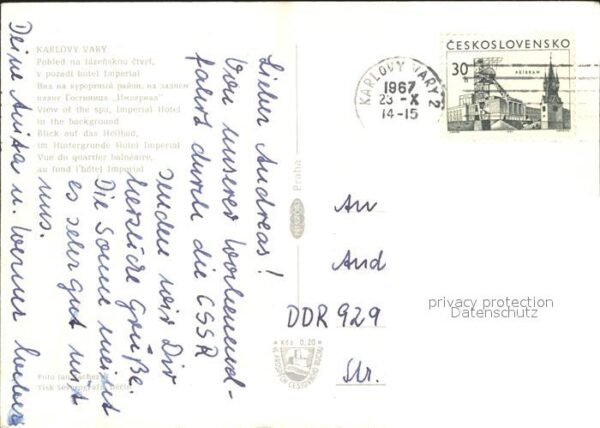 KARLOVY VARY
Pohled na lázeňskou čtvrť,
v pozadí hotel Imperial
Вид на курортный район, на заднем
плане Гостиница „Империал"
View of the spa, Imperial Hotel
in the background
Blick auf das Heilbad,
im Hintergrunde Hotel Imperial
Vue du quartier balnéaire,
au fond l'hôtel Imperial
Lieber Andreas!
Von unserer Wochenend-
fahrt durch die CSSR
senden wir Dir
herzliche Grüße.
Die Sonne meint
es sehr gut mit
uns.
Deine Anita u. Werner
Foto Jan
Tisk
Praha
ČESKOSLOVENSKO
30
PŘÍBRAM
KARLOVY VARY 2
1967
23 -X
14-15
An
And
DDR 929
Str.
Kčs 0,20
privacy protection
Datenschutz